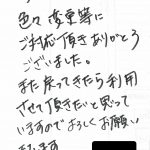 色々変更等に
ご対応頂きありがとう
ございました。
また戻ってきたら利用
させて頂きたいと思って
いますのでよろしくお願い
します